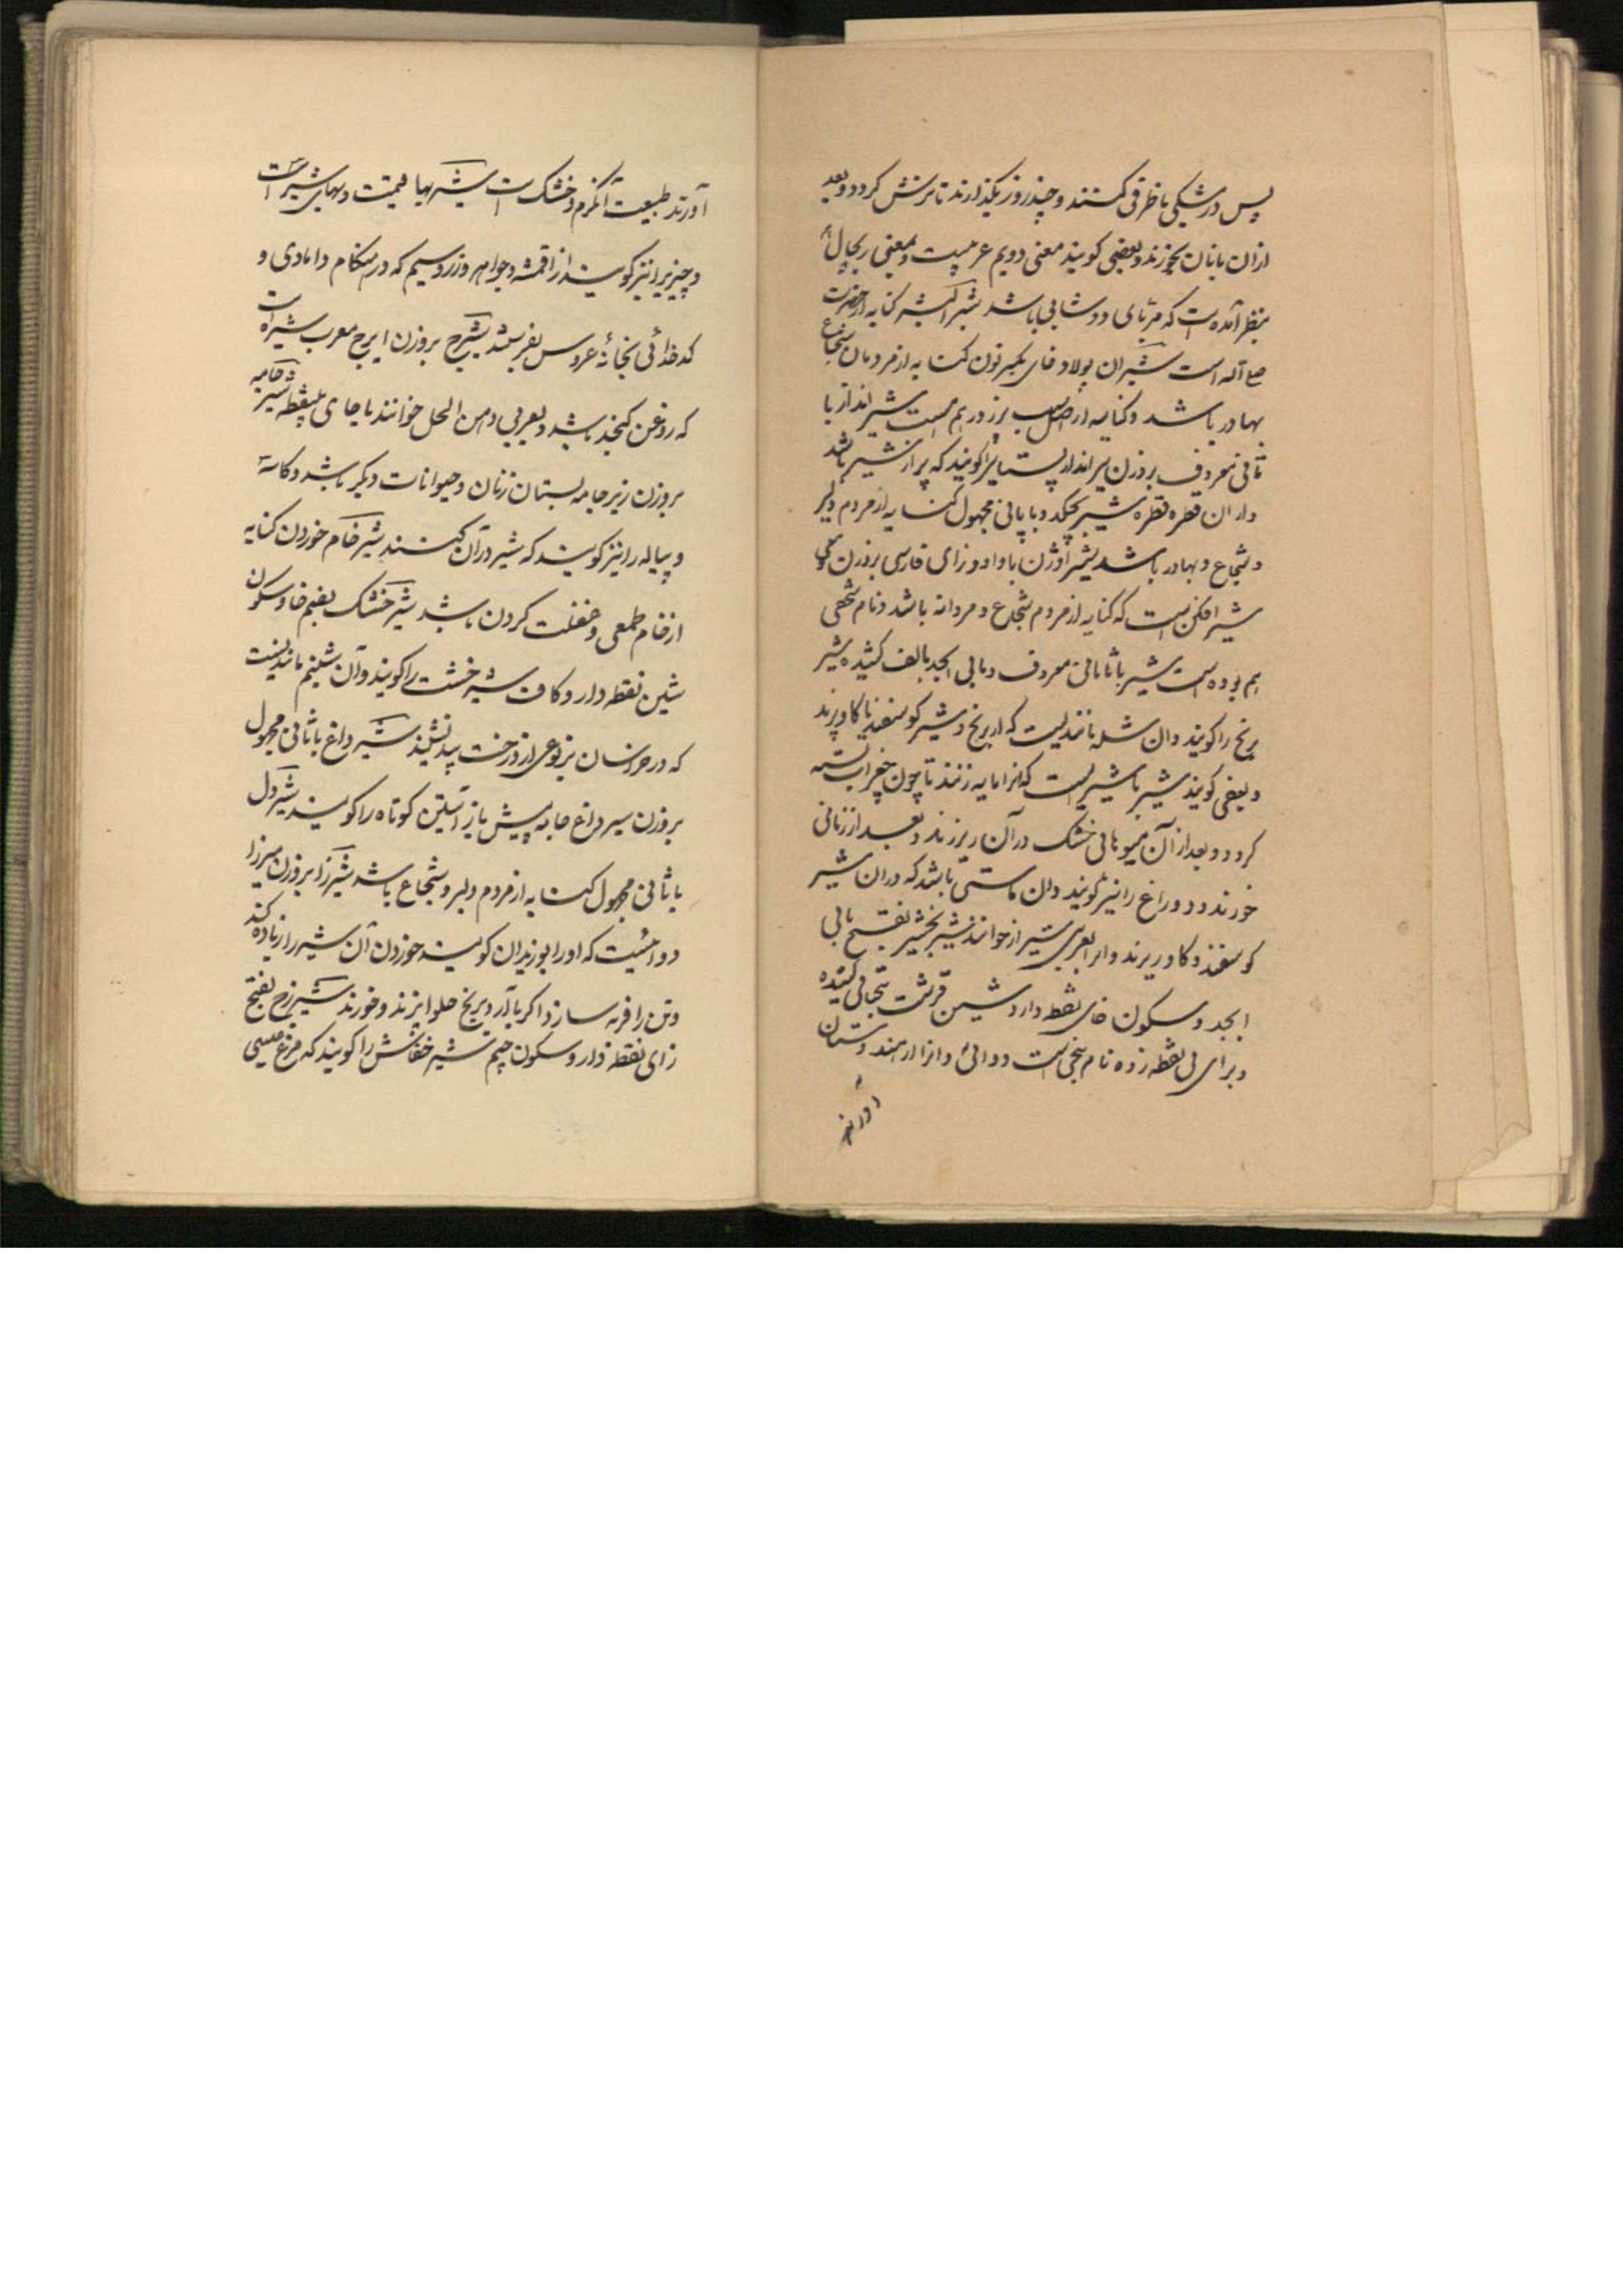 پس در مشکی یا ظرفی کنند و چند روز بگذارند تا ترش گردد و بعد
ازان با نان بخورند و بعضی گویند معنی دویم عربیست و بمعنی ریچال
بنظر آمده است که مربای دوشابی باشد شیر اکبشه کنایه از حضرت
است شیران پولاد خای بکسر نون کنایه از مردمان شجاع
بهادر باشد و کنایه از اسب پرزور هم هست شیر انداز با
ثانی معروف بروزن تیرانداز پستانیرا گویند که پر از شیر باشد
و ازان قطره قطره شیر بچکد و با یای مجهول کنایه از مردم دلیر
و شجاع و بهادر باشد شیر اوژن با واو و زای فارسی بروزن و معنی
شیر افکن است که کنایه از مردم شجاع و مردانه باشد و نام شخصی
هم بوده است شیر با ثانی معروف و بای ابجد بالف کشیده شیر
برنج را گویند و ان شله مانندیست که از برنج و شیر گوسفند یا گاو پزند
و بعضی گویند شیر با شیریست که انرا مایه زنند تا چون جغرات بسته
گردد و بعد از آن میوهای خشک در آن ریزند و بعد از زمانی
خورند و دوراغ را نیز گویند و ان ماستی باشد که دران شیر
گوسفند و گاو ریزند و انرا بعربی شیراز خوانند شیر بخشیر بفتح بای
ابجد و سکون خای نقطه دار و شین قرشت بتحتانی کشیده
و برای بی نقطه زده نام بیخی است دوائی و انرا از هندوستان
آورند
آورند طبیعت آن گرم و خشک است شیر بها قیمت و بهای شیر است
و چیزیرا نیز گویند از اقمشه و جواهر و زر و سیم که در هنگام دامادی و
کدخدائی بخانهٔ عروس بفرستند شیرج بروزن ایرج معرب شیره است
که روغن کنجد باشد و بعربی دهن الحل خوانند با حای بینقطه شیر خامه
بروزن زیر جامه پستان زنان و حیوانات دیگر باشد و کاسه
و پیاله را نیز گویند که شیر در آن کنند شیر خام خوردن کنایه
از خام طمعی و غفلت کردن باشد شیر خشک بضم خا و سکون
شین نقطه دار و کاف شیر خشت را گویند و آن شبنم مانندیست
که در خراسان بر نوعی از درخت بید نشیند شیر داغ با ثانی مجهول
بروزن سیر داغ جامه پیش باز آستین کوتاه را گویند شیر دل
با ثانی مجهول کنایه از مردم دلیر و شجاع باشد شیر زا بروزن میرزا
دوائیست که اورا بوزیدان گویند خوردن آن شیر را زیاده کند
و تن را فربه سازد اگر با آرد برنج حلوا پزند و خورند شیرزج بفتح
زای نقطه دار و سکون جیم شیر خفاش را گویند که مرغ عیسی